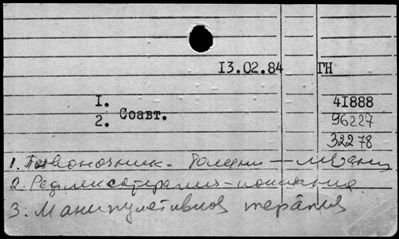 13.02.84 ГН
1. 41888
2. Соавт. 96227
32278
1. Позвоночник. Болезни — лечение
2. Рефлексотерапия - показания
3. Мануальная терапия